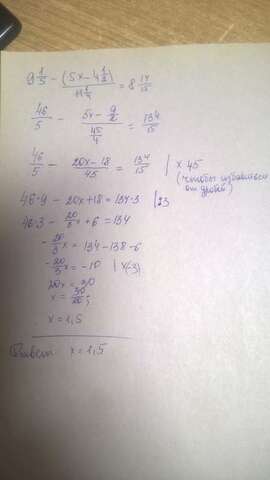 9 1/5 - (5x - 4 1/2) / 11 1/4 = 8 14/15
46/5 - (5x - 9/2) / (45/4) = 134/15
46/5 - (20x - 18)/45 = 134/15 | x 45
(чтобы избавиться от дробей)
46·9 - 20x + 18 = 134·3 | :3
46·3 - 20/3 x + 6 = 134
- 20/3 x = 134 - 138 - 6
- 20/3 x = -10 | x(-3)
20x = 30
x = 30/20;
x = 1,5
Ответ: x = 1,5